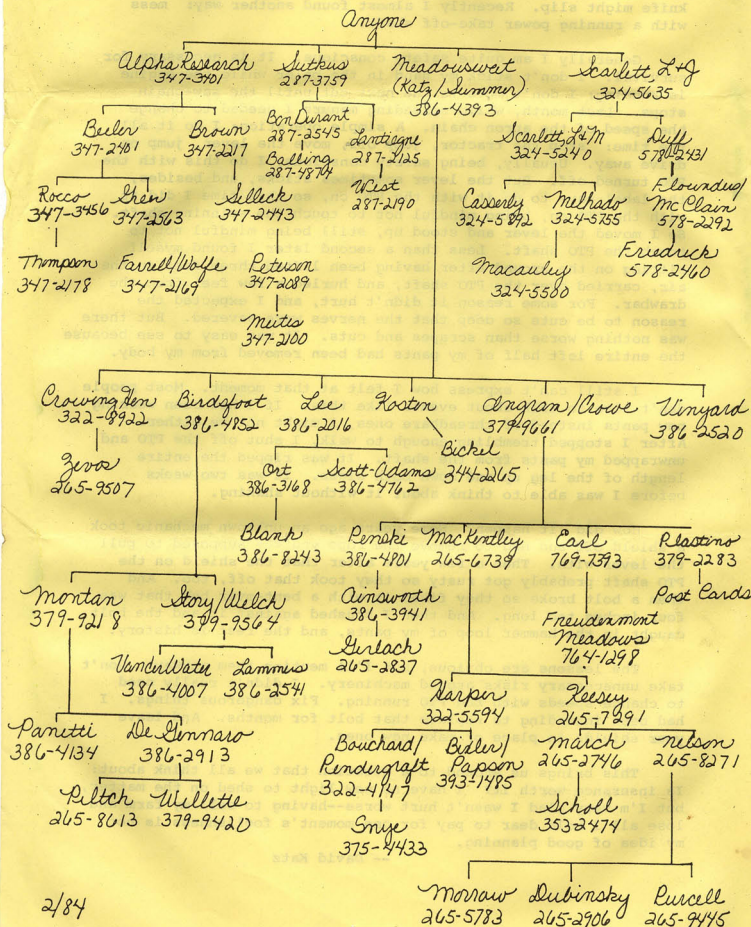 Anyone
Alpha Research
347-3401
Sutkus
287-3759
Meadowsweet
(Katz/Summer)
386-4393
Scarlett, L+J
324-5635
Beeler
347-2401
Brown
347-2217
Bon Durant
287-2545
Balling
287-4874
Lantiegne
287-2125
West
287-2190
Scarlett, L+M
324-5240
Duff
578-2431
Rocco
347-3456
Green
347-2563
Selleck
347-2443
Casserly
324-5892
Melhado
324-5755
Floundus/
McClain
578-2292
Thompson
347-2178
Farrell/Wolfe
347-2169
Peterson
347-2089
Macauley
324-5500
Friedrick
578-2460
Meites
347-2100
Crowing Hen
322-8922
Birdsfoot
386-4852
Lee
386-2016
Kosten
Angram/Crowe
379-9661
Vinyard
386-2520
Zevos
265-9507
Ort
386-3168
Scott-Adams
386-4762
Bickel
344-2265
Blank
386-8243
Penski
386-4801
MacKentley
265-6739
Earl
769-7393
Plastino
379-2283
Montan
379-9218
Story/Welch
379-9564
Ainsworth
386-3941
Post Cards
Gerlach
265-2837
Freudenmont
Meadows
764-1298
VanderWater
386-4007
Lammers
386-2541
Harper
322-5594
Keesey
265-7291
Panetti
386-4134
De Gennaro
386-2913
Bouchard/
Pendergraft
322-4147
Bixler/
Papson
393-1485
March
265-2746
Nelson
265-8271
Piltch
265-8613
Willette
379-9420
Snye
375-4433
Scholl
353-2474
Morrow
265-5783
Dubinsky
265-2906
Purcell
265-9445
2/84